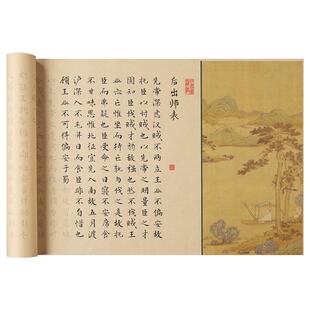 后出师表
先帝深虑汉贼不两立王业不偏安故
托臣以讨贼也以先帝之明量臣之才
固知臣伐贼才弱敌强也然不伐贼王
业亦亡惟坐而待亡孰与伐之是故托
臣而弗疑也臣受命之日寝不安席食
不甘味思惟北征宜先入南故五月渡
泸深入不毛并日而食臣非不自惜也
顾王业不可得偏安于蜀